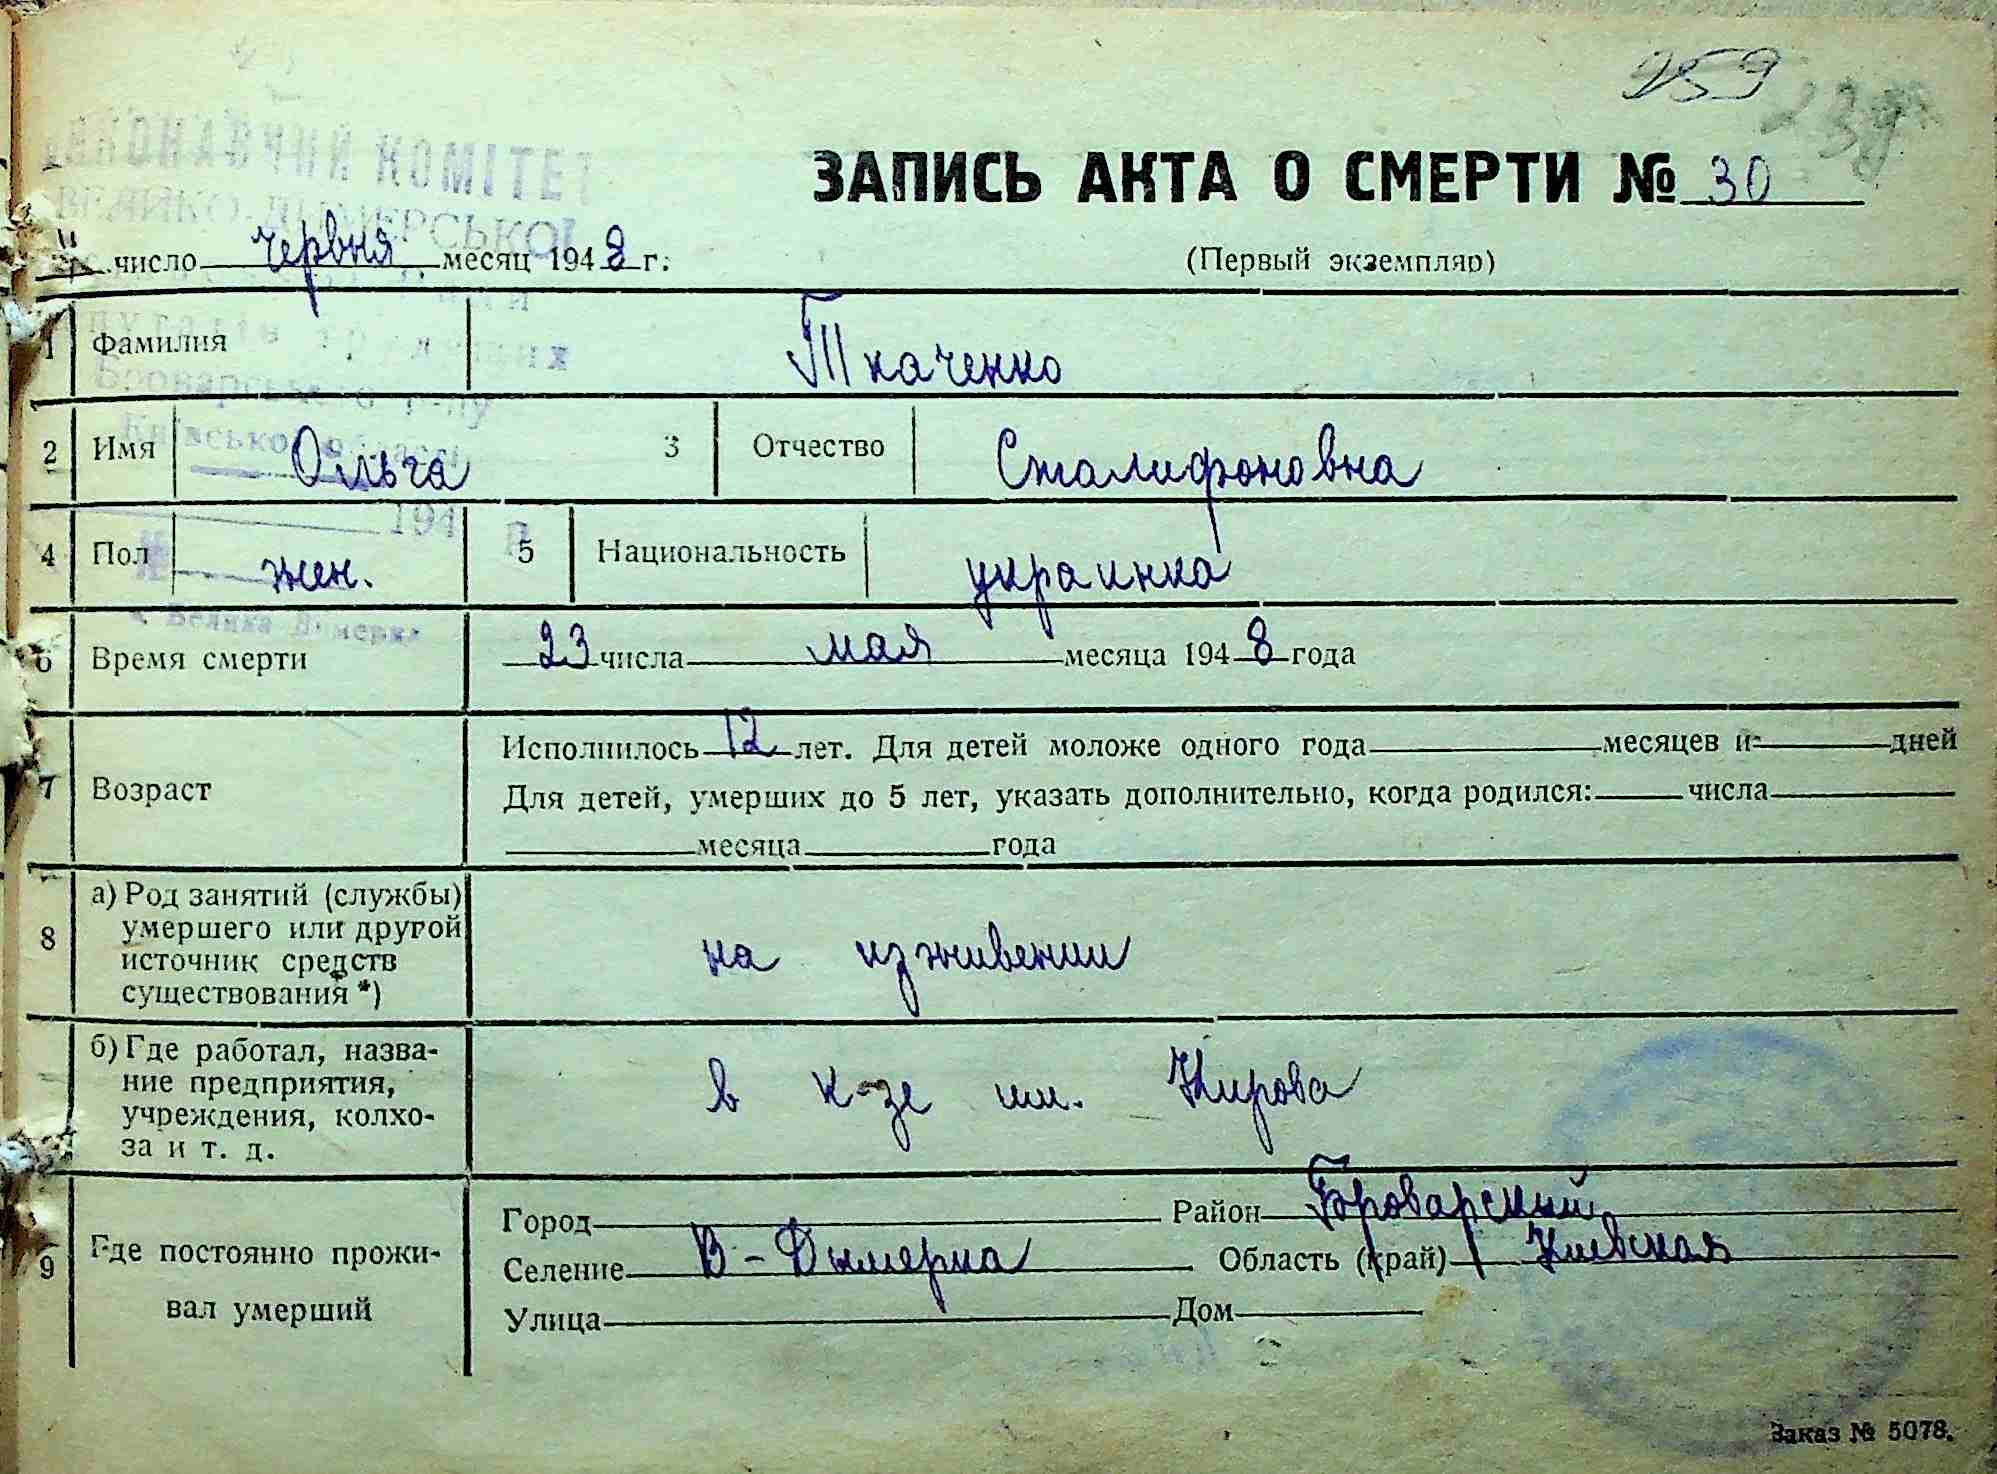 259
239
ВИКОНАВЧИЙ КОМІТЕТ
ВЕЛИКО-ДИМЕРСЬКОЇ
ЗАПИСЬ АКТА О СМЕРТИ № 30
число червня месяц 1948 г.
(Первый экземпляр)
депутатів трудящих
Броварського р-ну
Київської області
194 р
с. Велика Димерка
1 Фамилия Ткаченко
2 Имя Ольга 3 Отчество Сталифоновна
4 Пол жен. 5 Национальность украинка
6 Время смерти 23 числа мая месяца 1948 года
7 Возраст Исполнилось 12 лет. Для детей моложе одного года месяцев и дней
Для детей, умерших до 5 лет, указать дополнительно, когда родился: числа
месяца года
8 а) Род занятий (службы)
умершего или другой
источник средств
существования *)
на изживении
б) Где работал, назва-
ние предприятия,
учреждения, колхо-
за и т. д.
в к-зе им. Кирова
9 Где постоянно прожи-
вал умерший
Город Район Броварский
Селение В-Дымерка Область (край) Киевская
Улица Дом
Заказ № 5078.